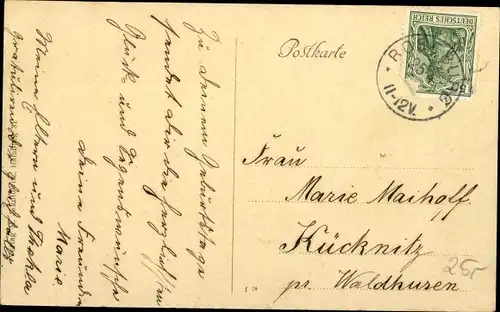 Postkarte
DEUTSCHES REICH
11-12V.
Zu deinem Geburtstage
sendet dir die herzlichsten
Glück- und Segenswünsche
deine Freundin
Marie.
Meine Eltern und Thekla
gratulieren
Frau
Marie Maihoff.
Kücknitz
pr. Waldhusen
25,-